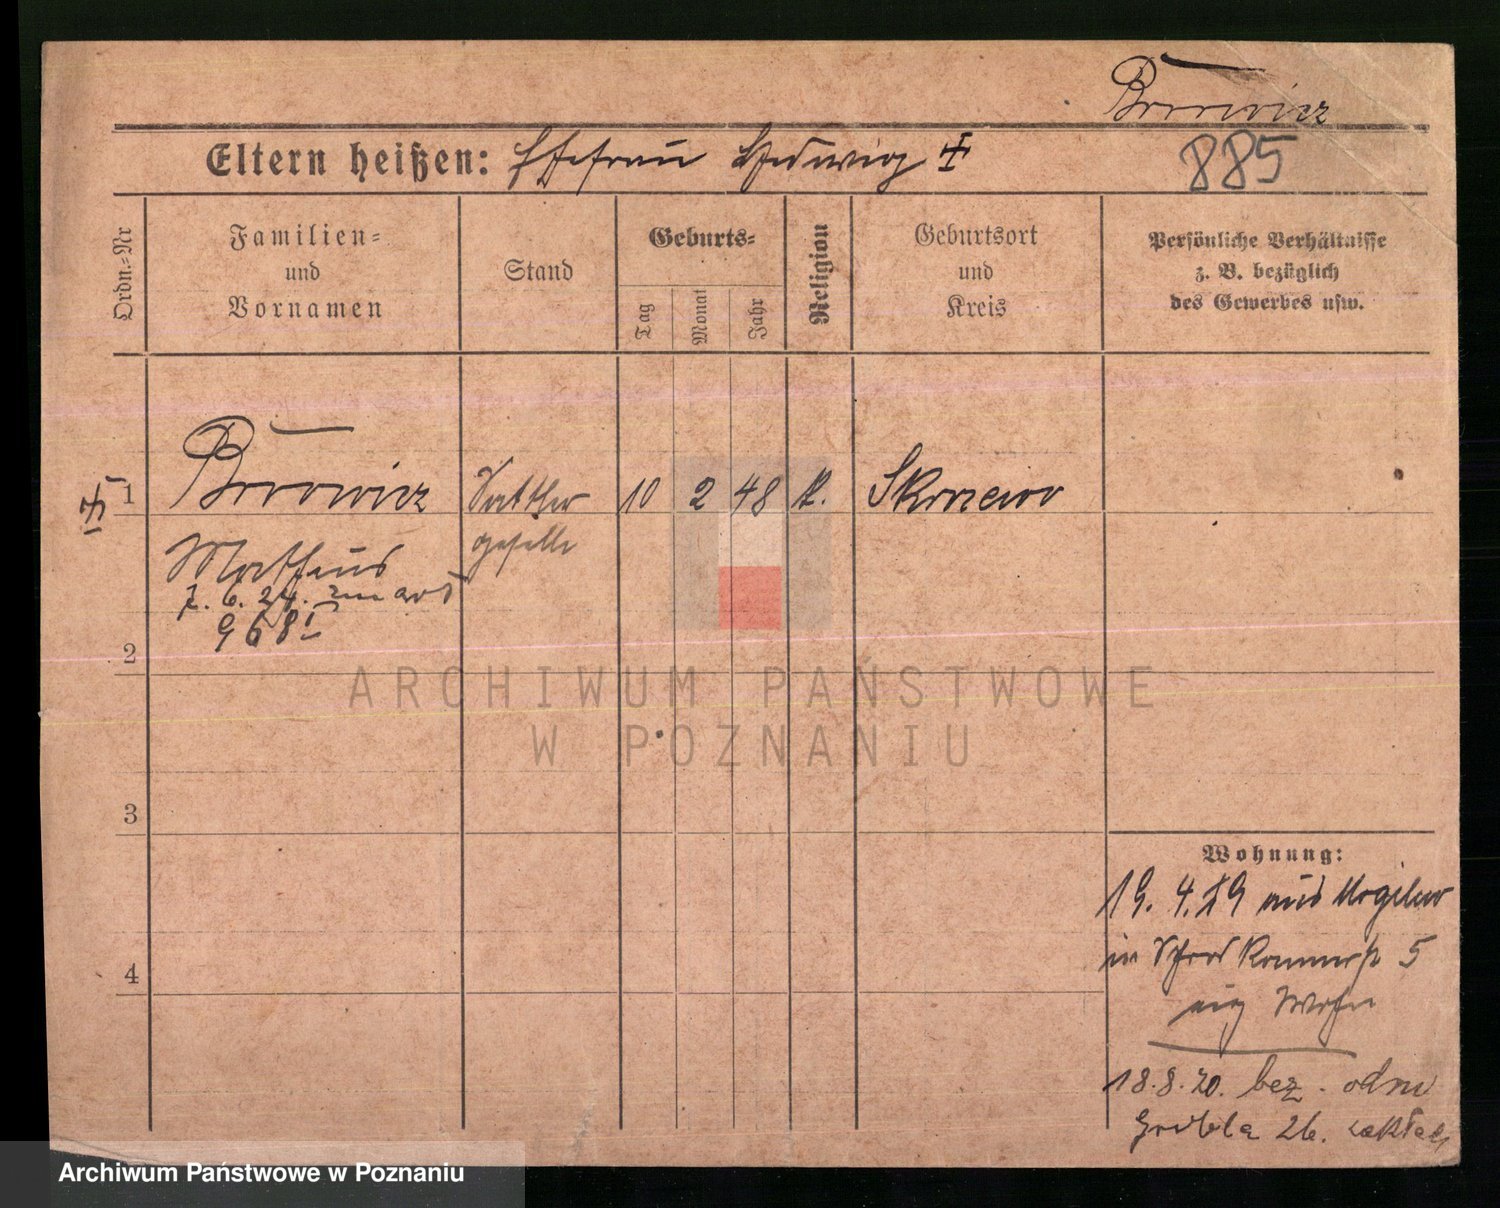 Borowicz
Eltern heißen: Ehefrau Hedwig ‡
885
Ordn.-Nr
Familien-
und
Vornamen
Stand
Geburts-
Tag
Monat
Jahr
Religion
Geburtsort
und
Kreis
Persönliche Verhältnisse
z. B. bezüglich
des Gewerbes usw.
1 Borowicz Sattler 10 2 48 k. Skorzewo
Matheus geselle
7. 6. 24.
968 I
2
ARCHIWUM PAŃSTWOWE
W POZNANIU
3
4
Wohnung:
19. 4. 19 aus
in 5
18.8.20. bez. odm
Grobla 26.
Archiwum Państwowe w Poznaniu